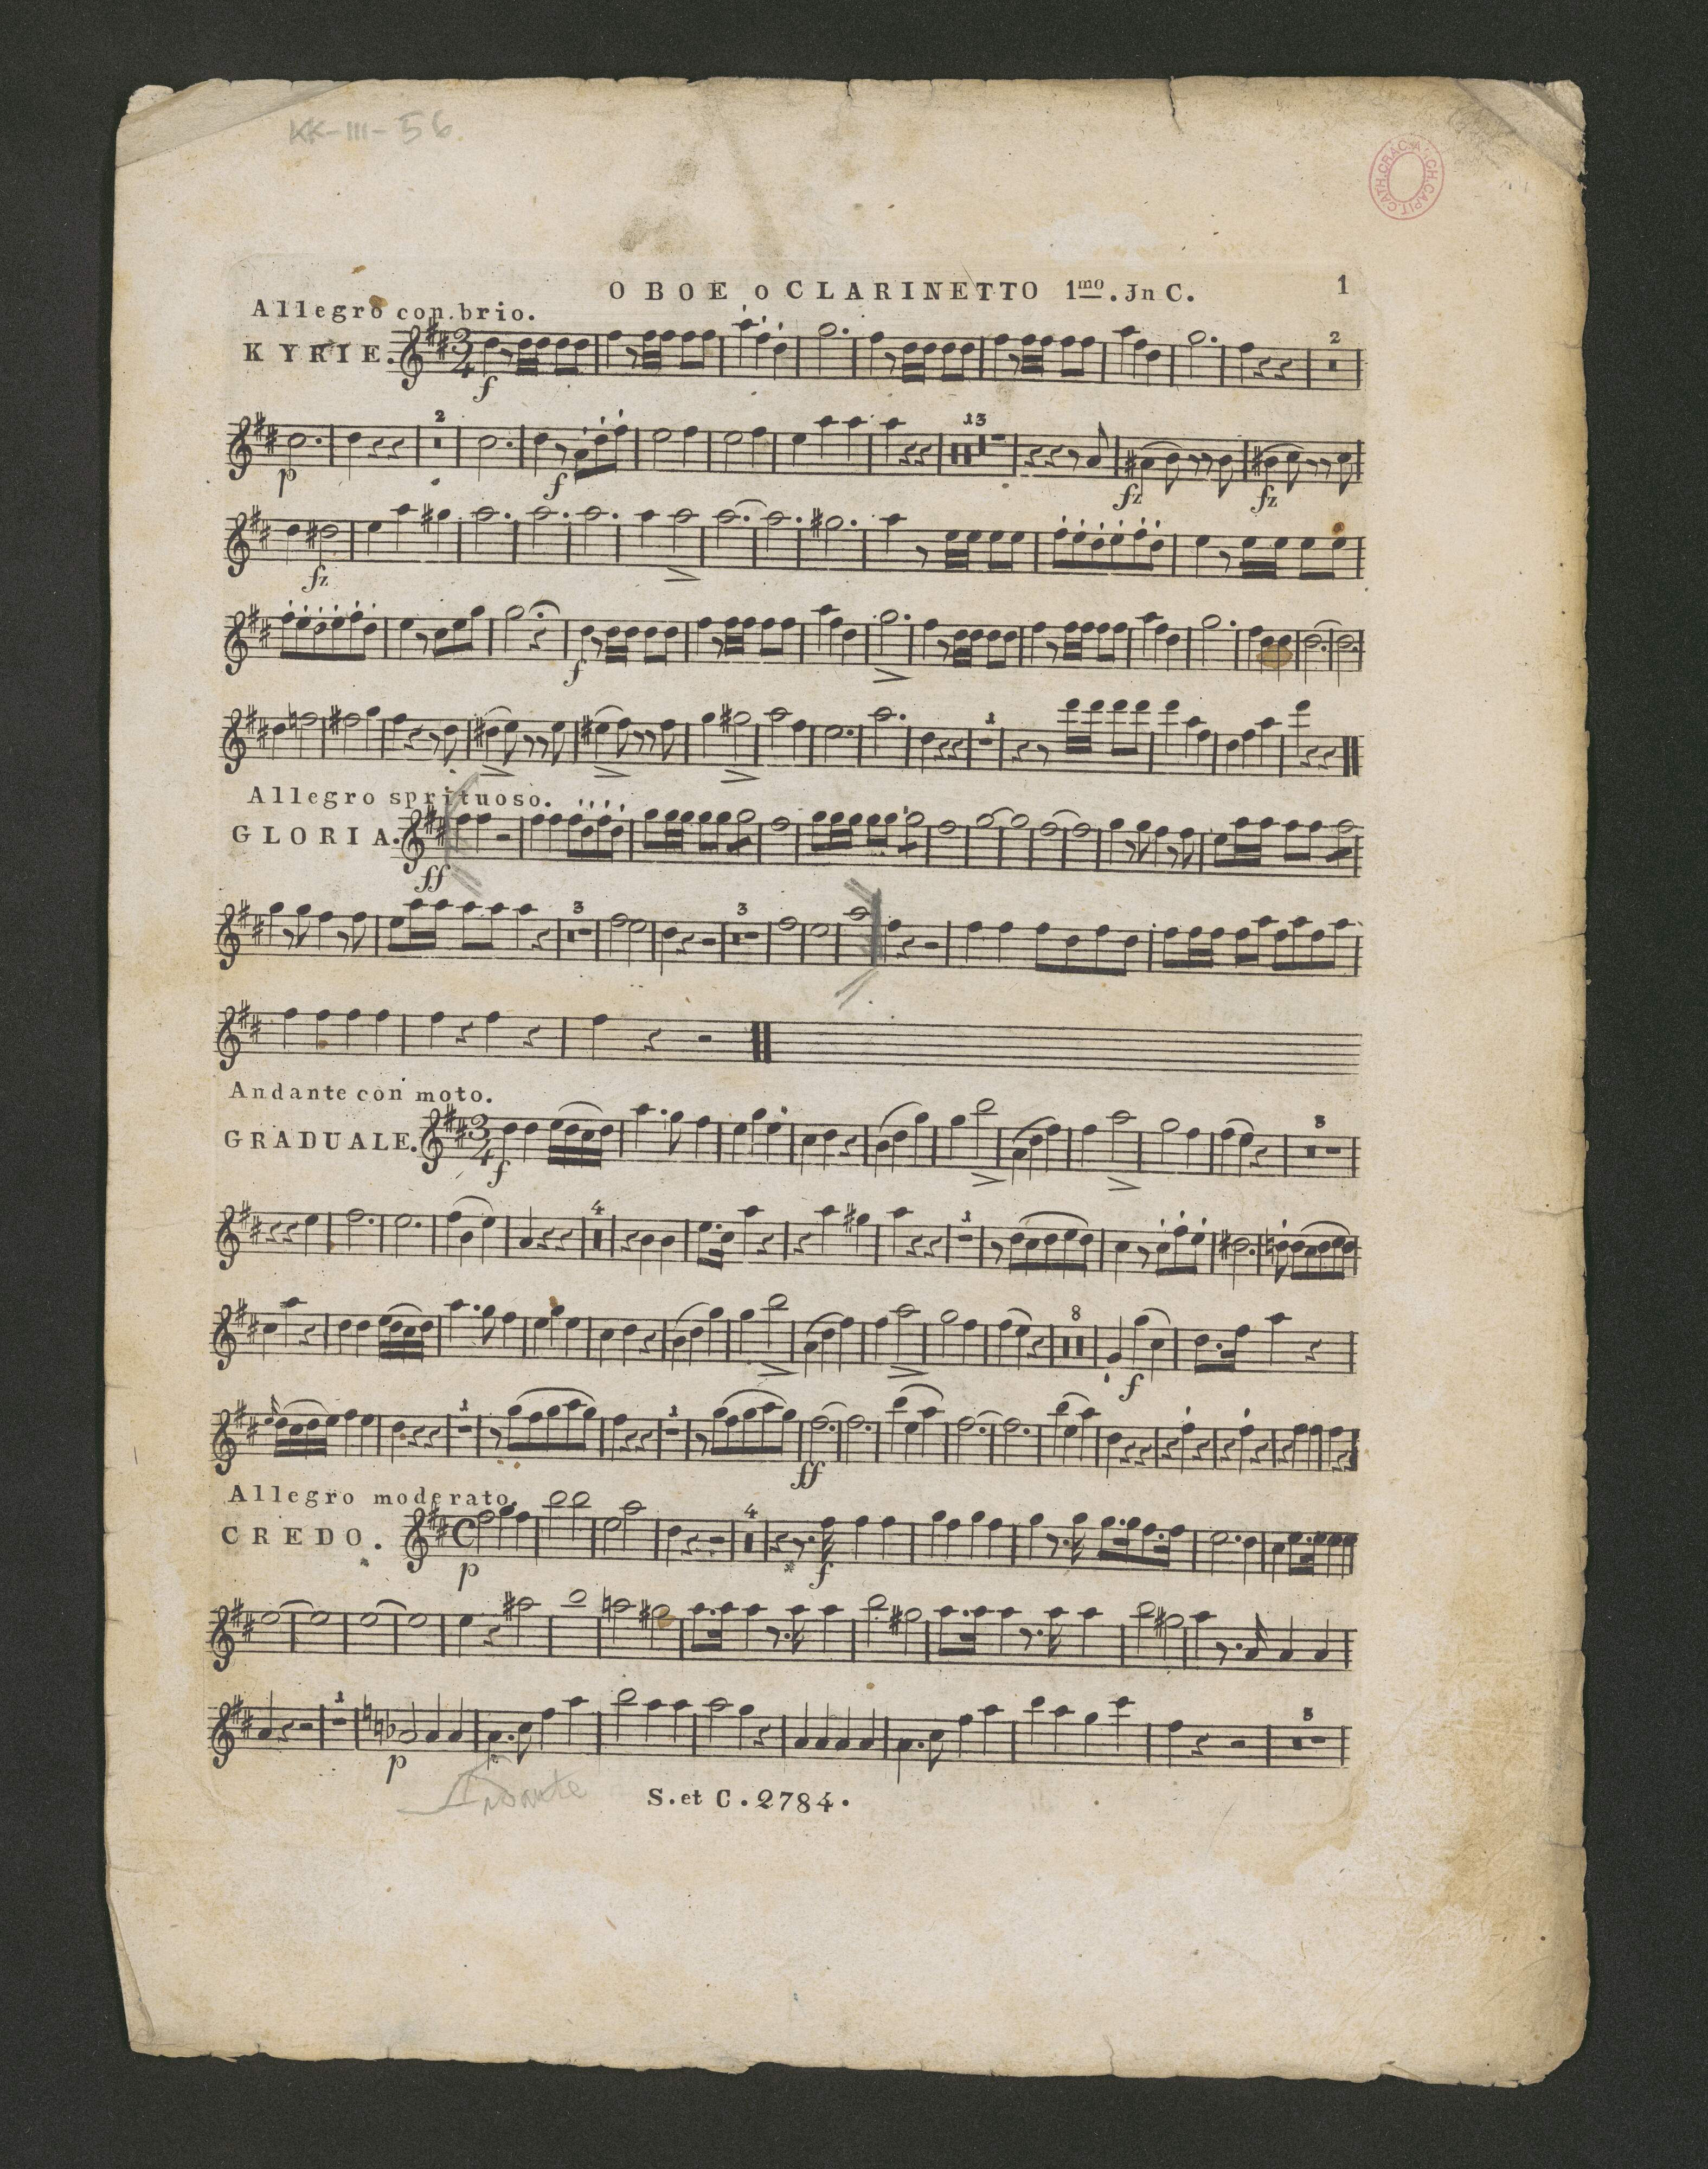 KK-III-56.
CATH.CRAC. ARCH.CAPIT.
OBOE o CLARINETTO 1mo. Jn C.
1
Allegro con brio.
KYRIE.
3
4
f
2
p
2
f
13
fz
fz
fz
f
1
Allegro sprituoso.
GLORIA.
ff
3
3
Andante con moto.
GRADUALE.
3
4
f
3
4
1
8
f
1
1
ff
Allegro moderato.
CREDO.
C
p
4
*
f
1
p
3
S. et C. 2784.